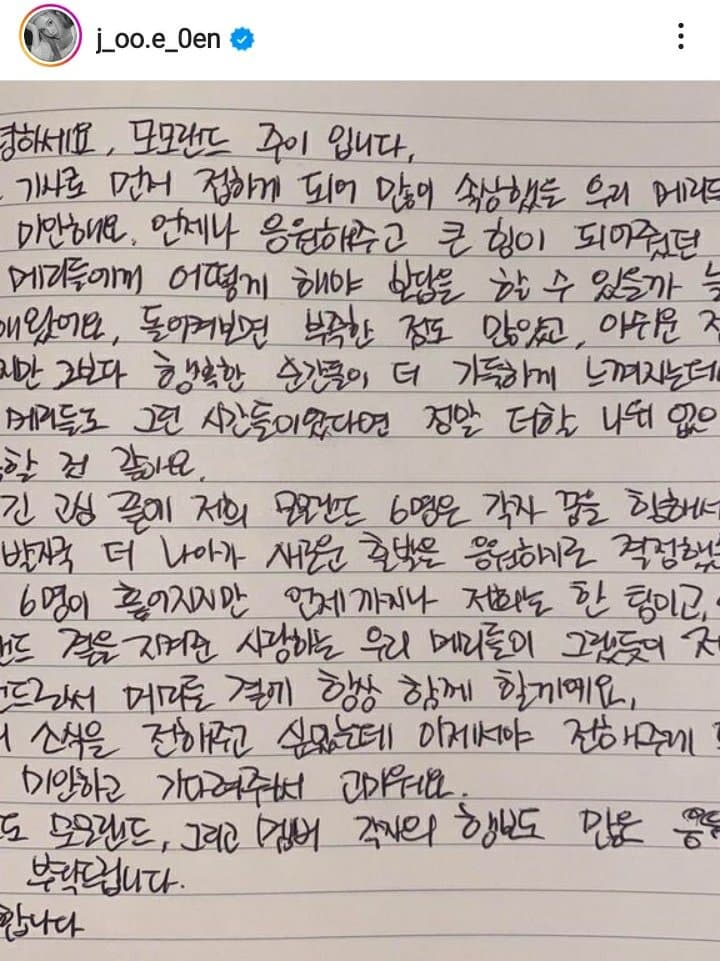 j_oo.e_0en
녕하세요, 모모랜드 주이 입니다,
기사로 먼저 접하게 되어 많이 속상했을 우리 메리
미안해요. 언제나 응원해주고 큰 힘이 되어줬던
메리들에게 어떻게 해야 보답을 할 수 있을까 늘
해왔어요, 돌이켜보면 부족한 점도 많았고, 아쉬운
지만 그보다 행복한 순간들이 더 가득하게 느껴지는데
메리들도 그런 시간들이었다면 정말 더할 나위 없으
할 것 같아요.
긴 고심 끝에 저희 모모랜드 6명은 각자 꿈을 향해서
발자국 더 나아가 새로운 출발을 응원하기로 결정했
6명이 흩어지지만 언제까지나 저희는 한 팀이고,
랜드 곁을 지켜준 사랑하는 우리 메리들이 그랬듯이 저
랜드로서 메리들 곁에 항상 함께 할게예요,
소식을 전해주고 싶었는데 이제서야 전해주게
미안하고 기다려줘서 고마워요.
도 모모랜드, 그리고 멤버 각자의 행보도 많은 응
부탁드립니다.
합니다